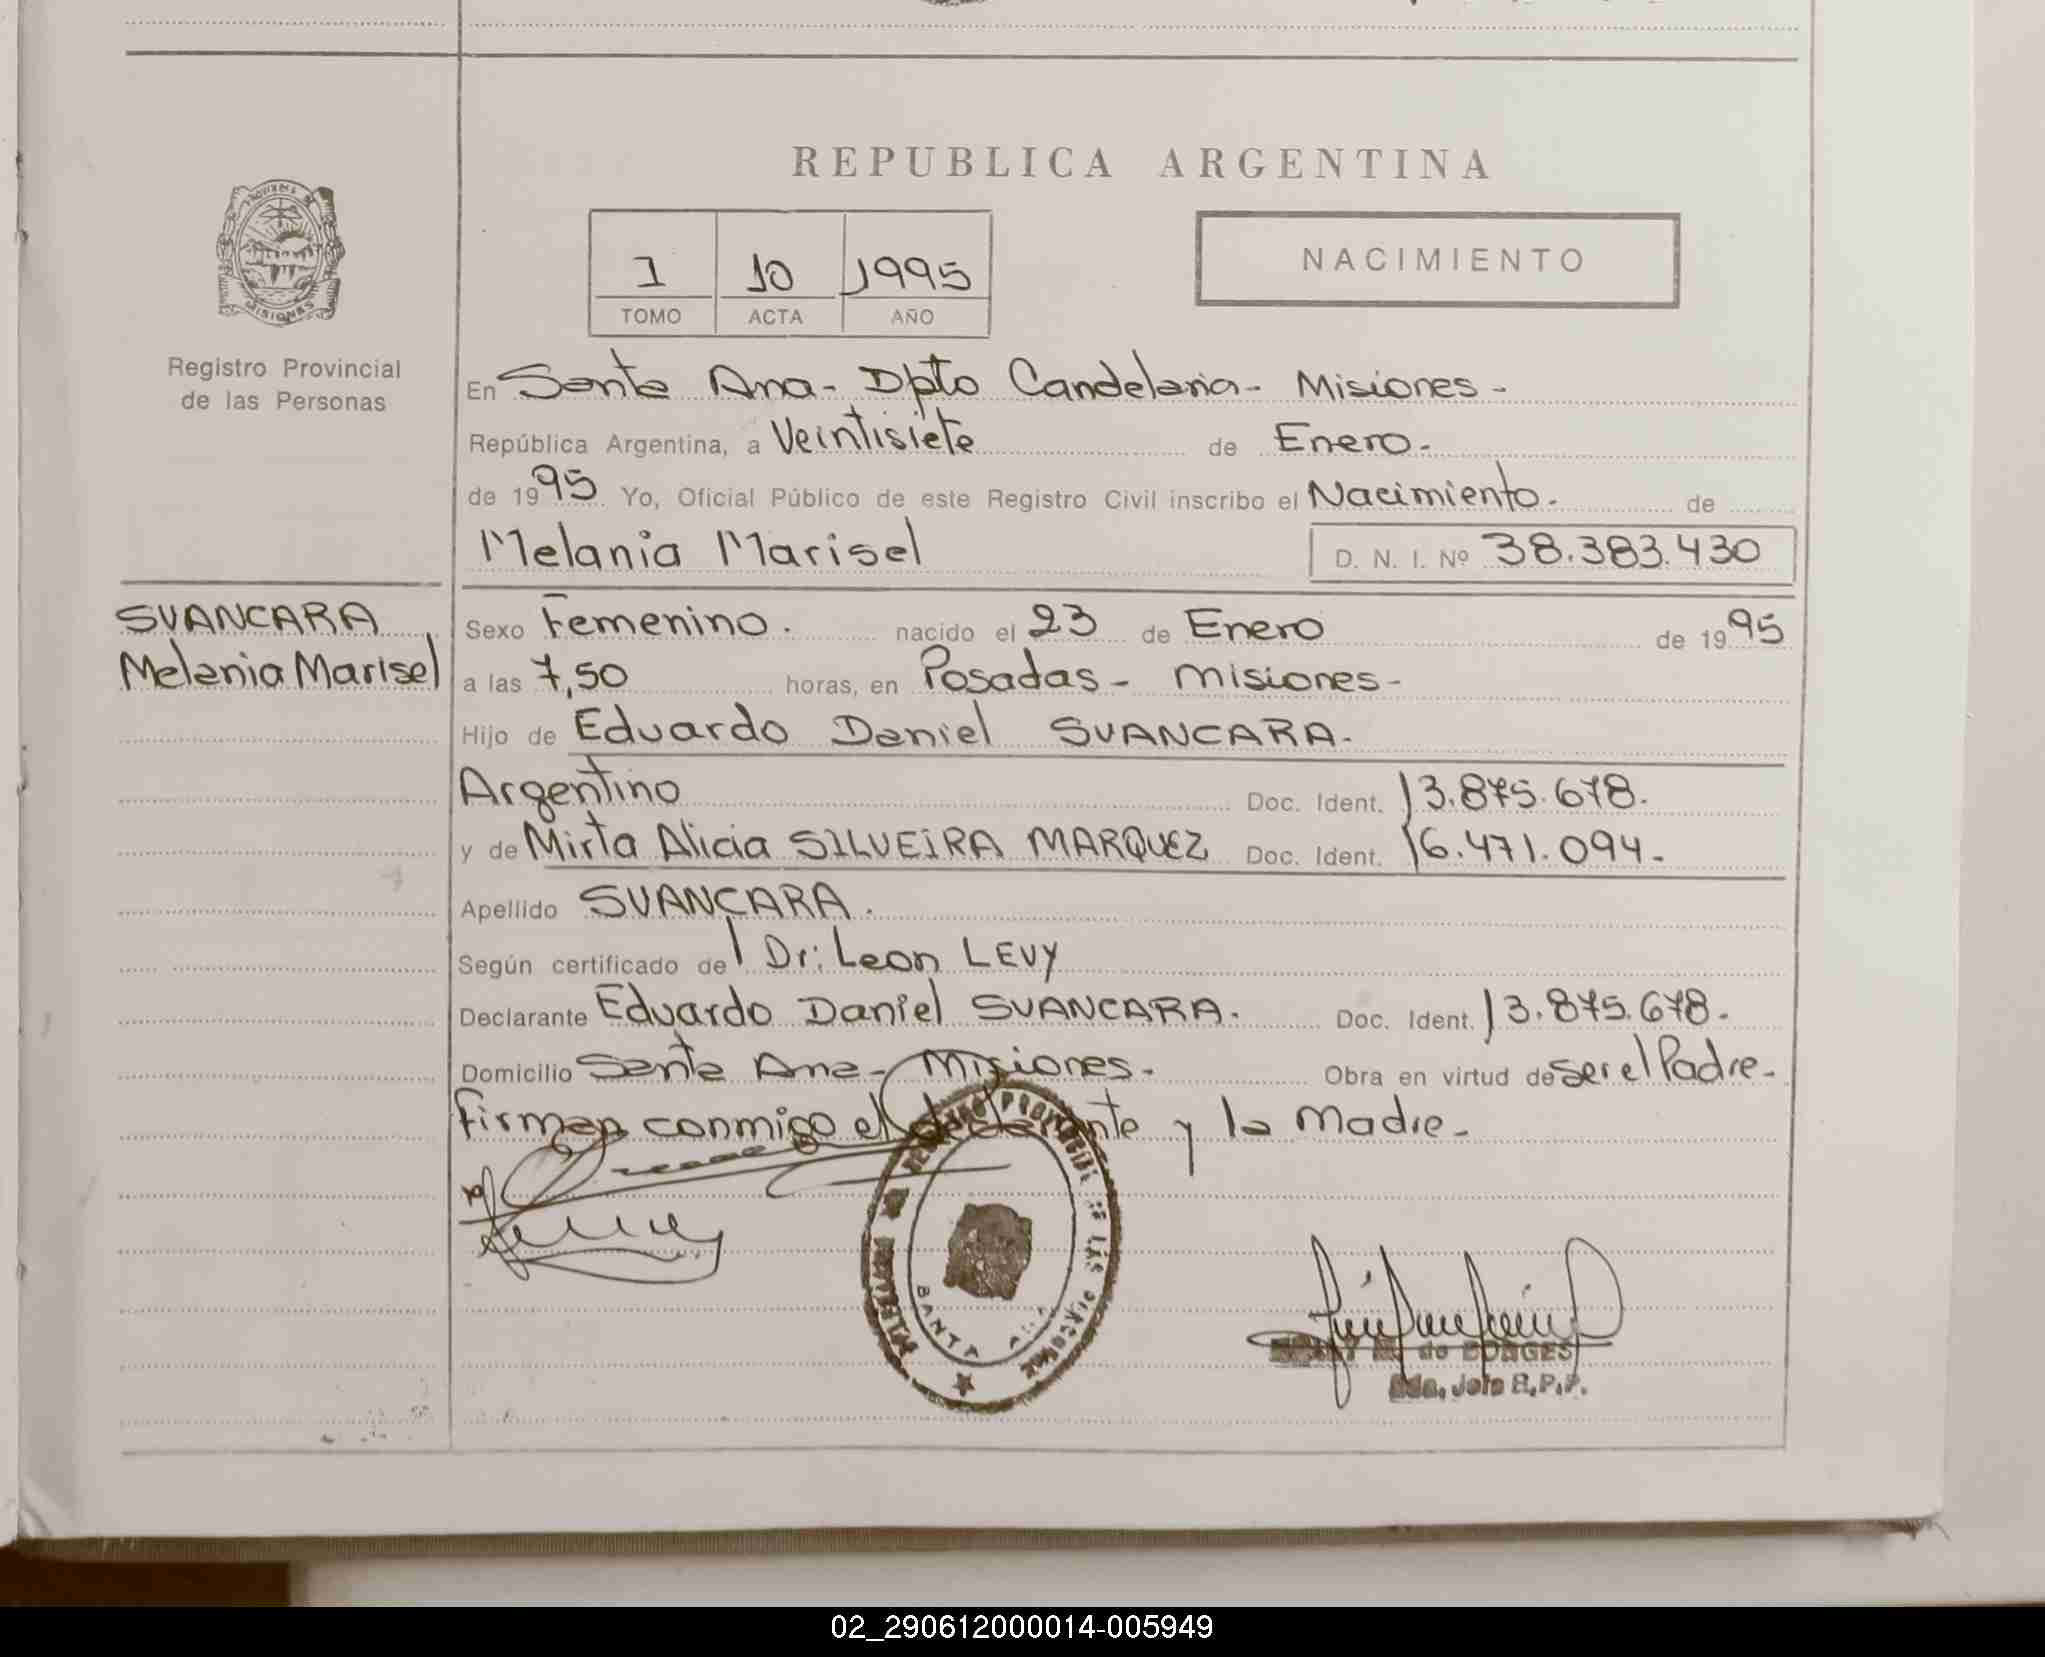 REPUBLICA ARGENTINA
PROVINCIA DE
MISIONES
Registro Provincial
de las Personas
1 10 1995
TOMO ACTA AÑO
NACIMIENTO
En Santa Ana - Dpto Candelaria - Misiones -
República Argentina, a Veintisiete de Enero.
de 1995 Yo, Oficial Público de este Registro Civil inscribo el Nacimiento. de
Melania Marisel D. N. I. Nº 38.383.430
SVANCARA
Melania Marisel
Sexo Femenino. nacido el 23 de Enero de 1995
a las 7,50 horas, en Posadas - Misiones -
Hijo de Eduardo Daniel SVANCARA.
Argentino Doc. Ident. 13.875.678.
y de Mirta Alicia SILVEIRA MARQUEZ Doc. Ident. 16.471.094.
Apellido SVANCARA.
Según certificado del Dr: Leon LEVY
Declarante Eduardo Daniel SVANCARA. Doc. Ident. 13.875.678.
Domicilio Santa Ana - Misiones. Obra en virtud de ser el Padre.
Firman conmigo el declarante y la Madre.
REGISTRO PROVINCIAL DE LAS PERSONAS
SANTA
de BORGES
Jefe R.P.P.
02_290612000014-005949